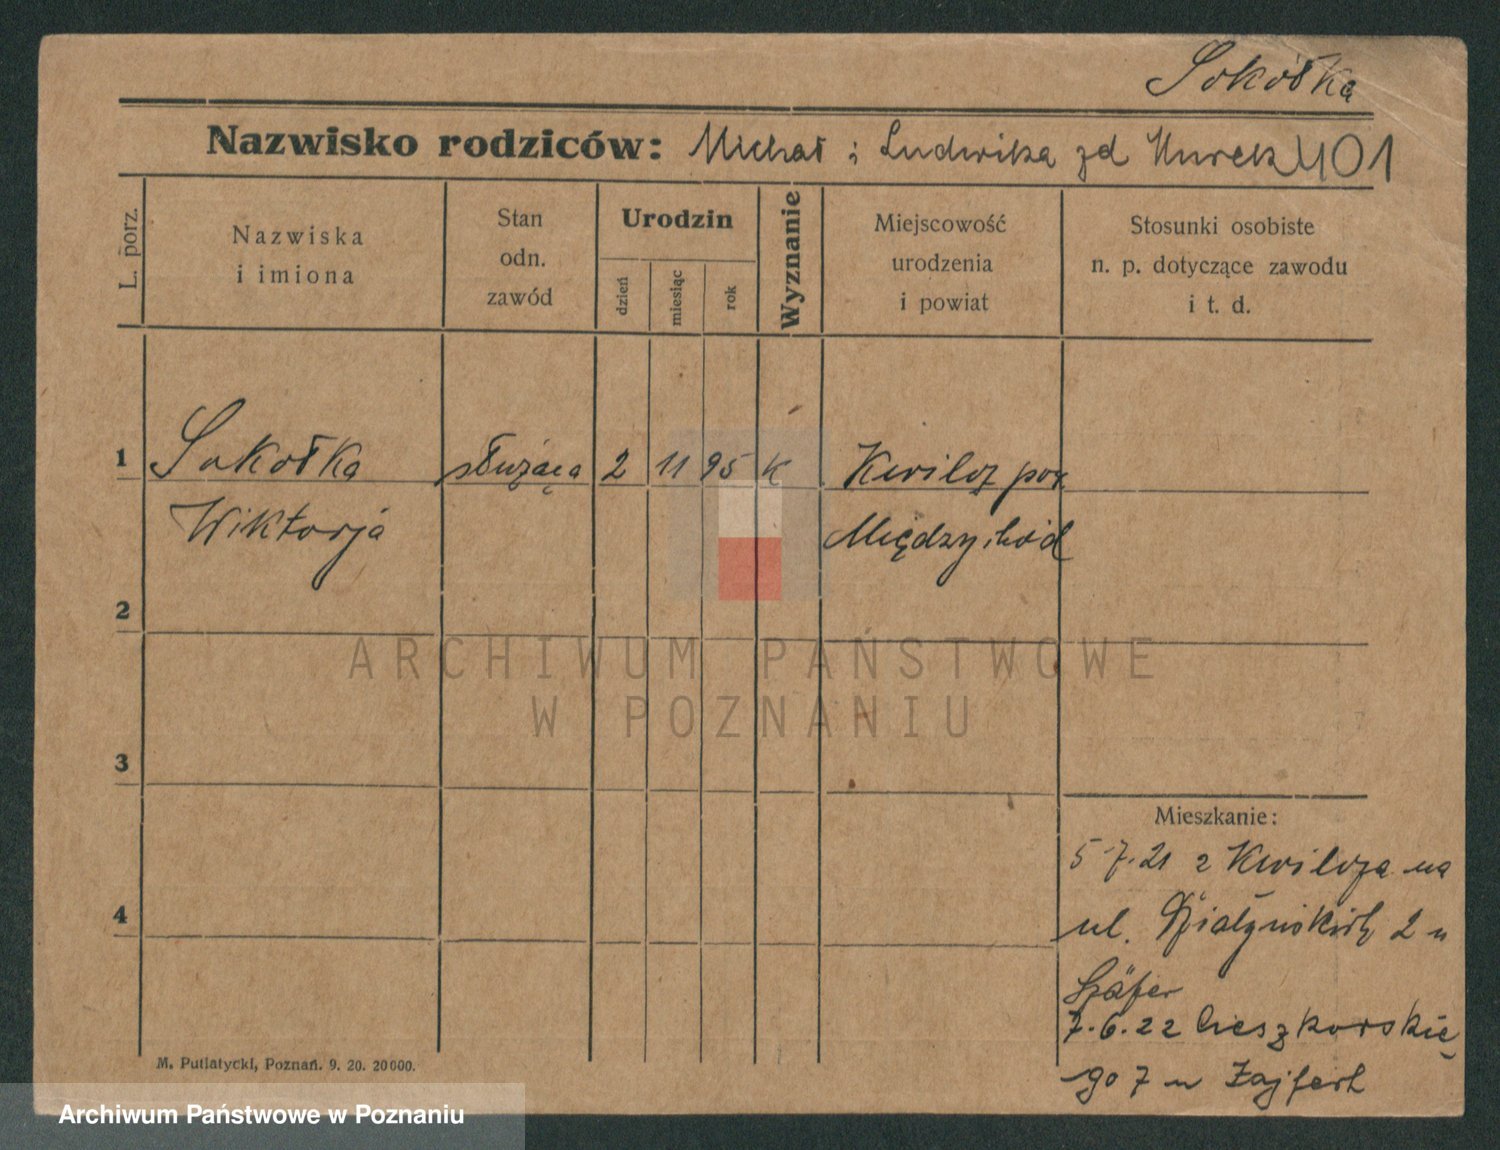 Sokołka
Nazwisko rodziców: Michał i Ludwika zd Hurek 401
L. porz.
Nazwiska
i imiona
Stan
odn.
zawód
Urodzin
dzień
miesiąc
rok
Wyznanie
Miejscowość
urodzenia
i powiat
Stosunki osobiste
n. p. dotyczące zawodu
i t. d.
1 Sokołka służąca 2 11 95 K Kwilcz pow.
Wiktorja Międzychód
2
3
4
Mieszkanie:
5.7.21 z Kwilcza na
ul. Działyńskich 2 u
Szäfer
7.6.22 Cieszkowskie
go 7 u Zajfert
M. Putiatycki, Poznań. 9. 20. 20000.
ARCHIWUM PAŃSTWOWE
W POZNANIU
Archiwum Państwowe w Poznaniu